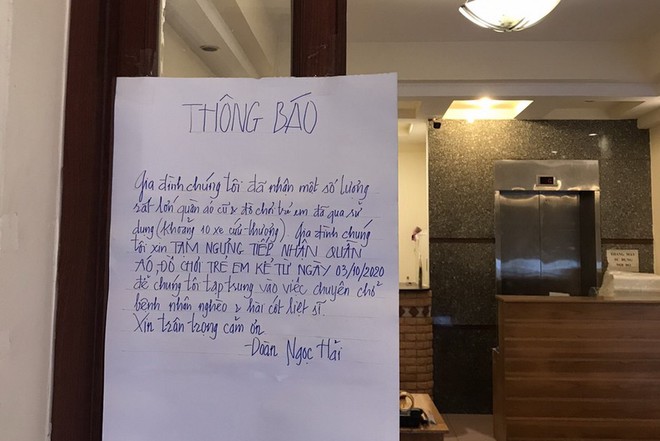 THÔNG BÁO
Gia đình chúng tôi đã nhận một số lượng
rất lớn quần áo cũ & đồ chơi trẻ em đã qua sử
dụng (khoảng 10 xe cứu thương). Gia đình chúng
tôi xin TẠM NGƯNG TIẾP NHẬN QUẦN
ÁO, ĐỒ CHƠI TRẺ EM KỂ TỪ NGÀY 03/10/2020
để chúng tôi tập trung vào việc chuyên chở
bệnh nhân nghèo & hài cốt liệt sĩ.
Xin trân trọng cảm ơn.
-Đoàn Ngọc Hải